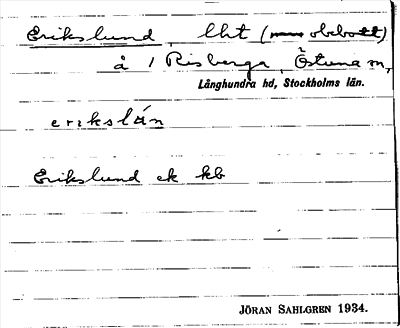 Erikslund lht (obebott)
å 1 Risberga, Östuna sn,
Långhundra hd, Stockholms län.
erikslán
Erikslund ek kb
JÖRAN SAHLGREN 1934.